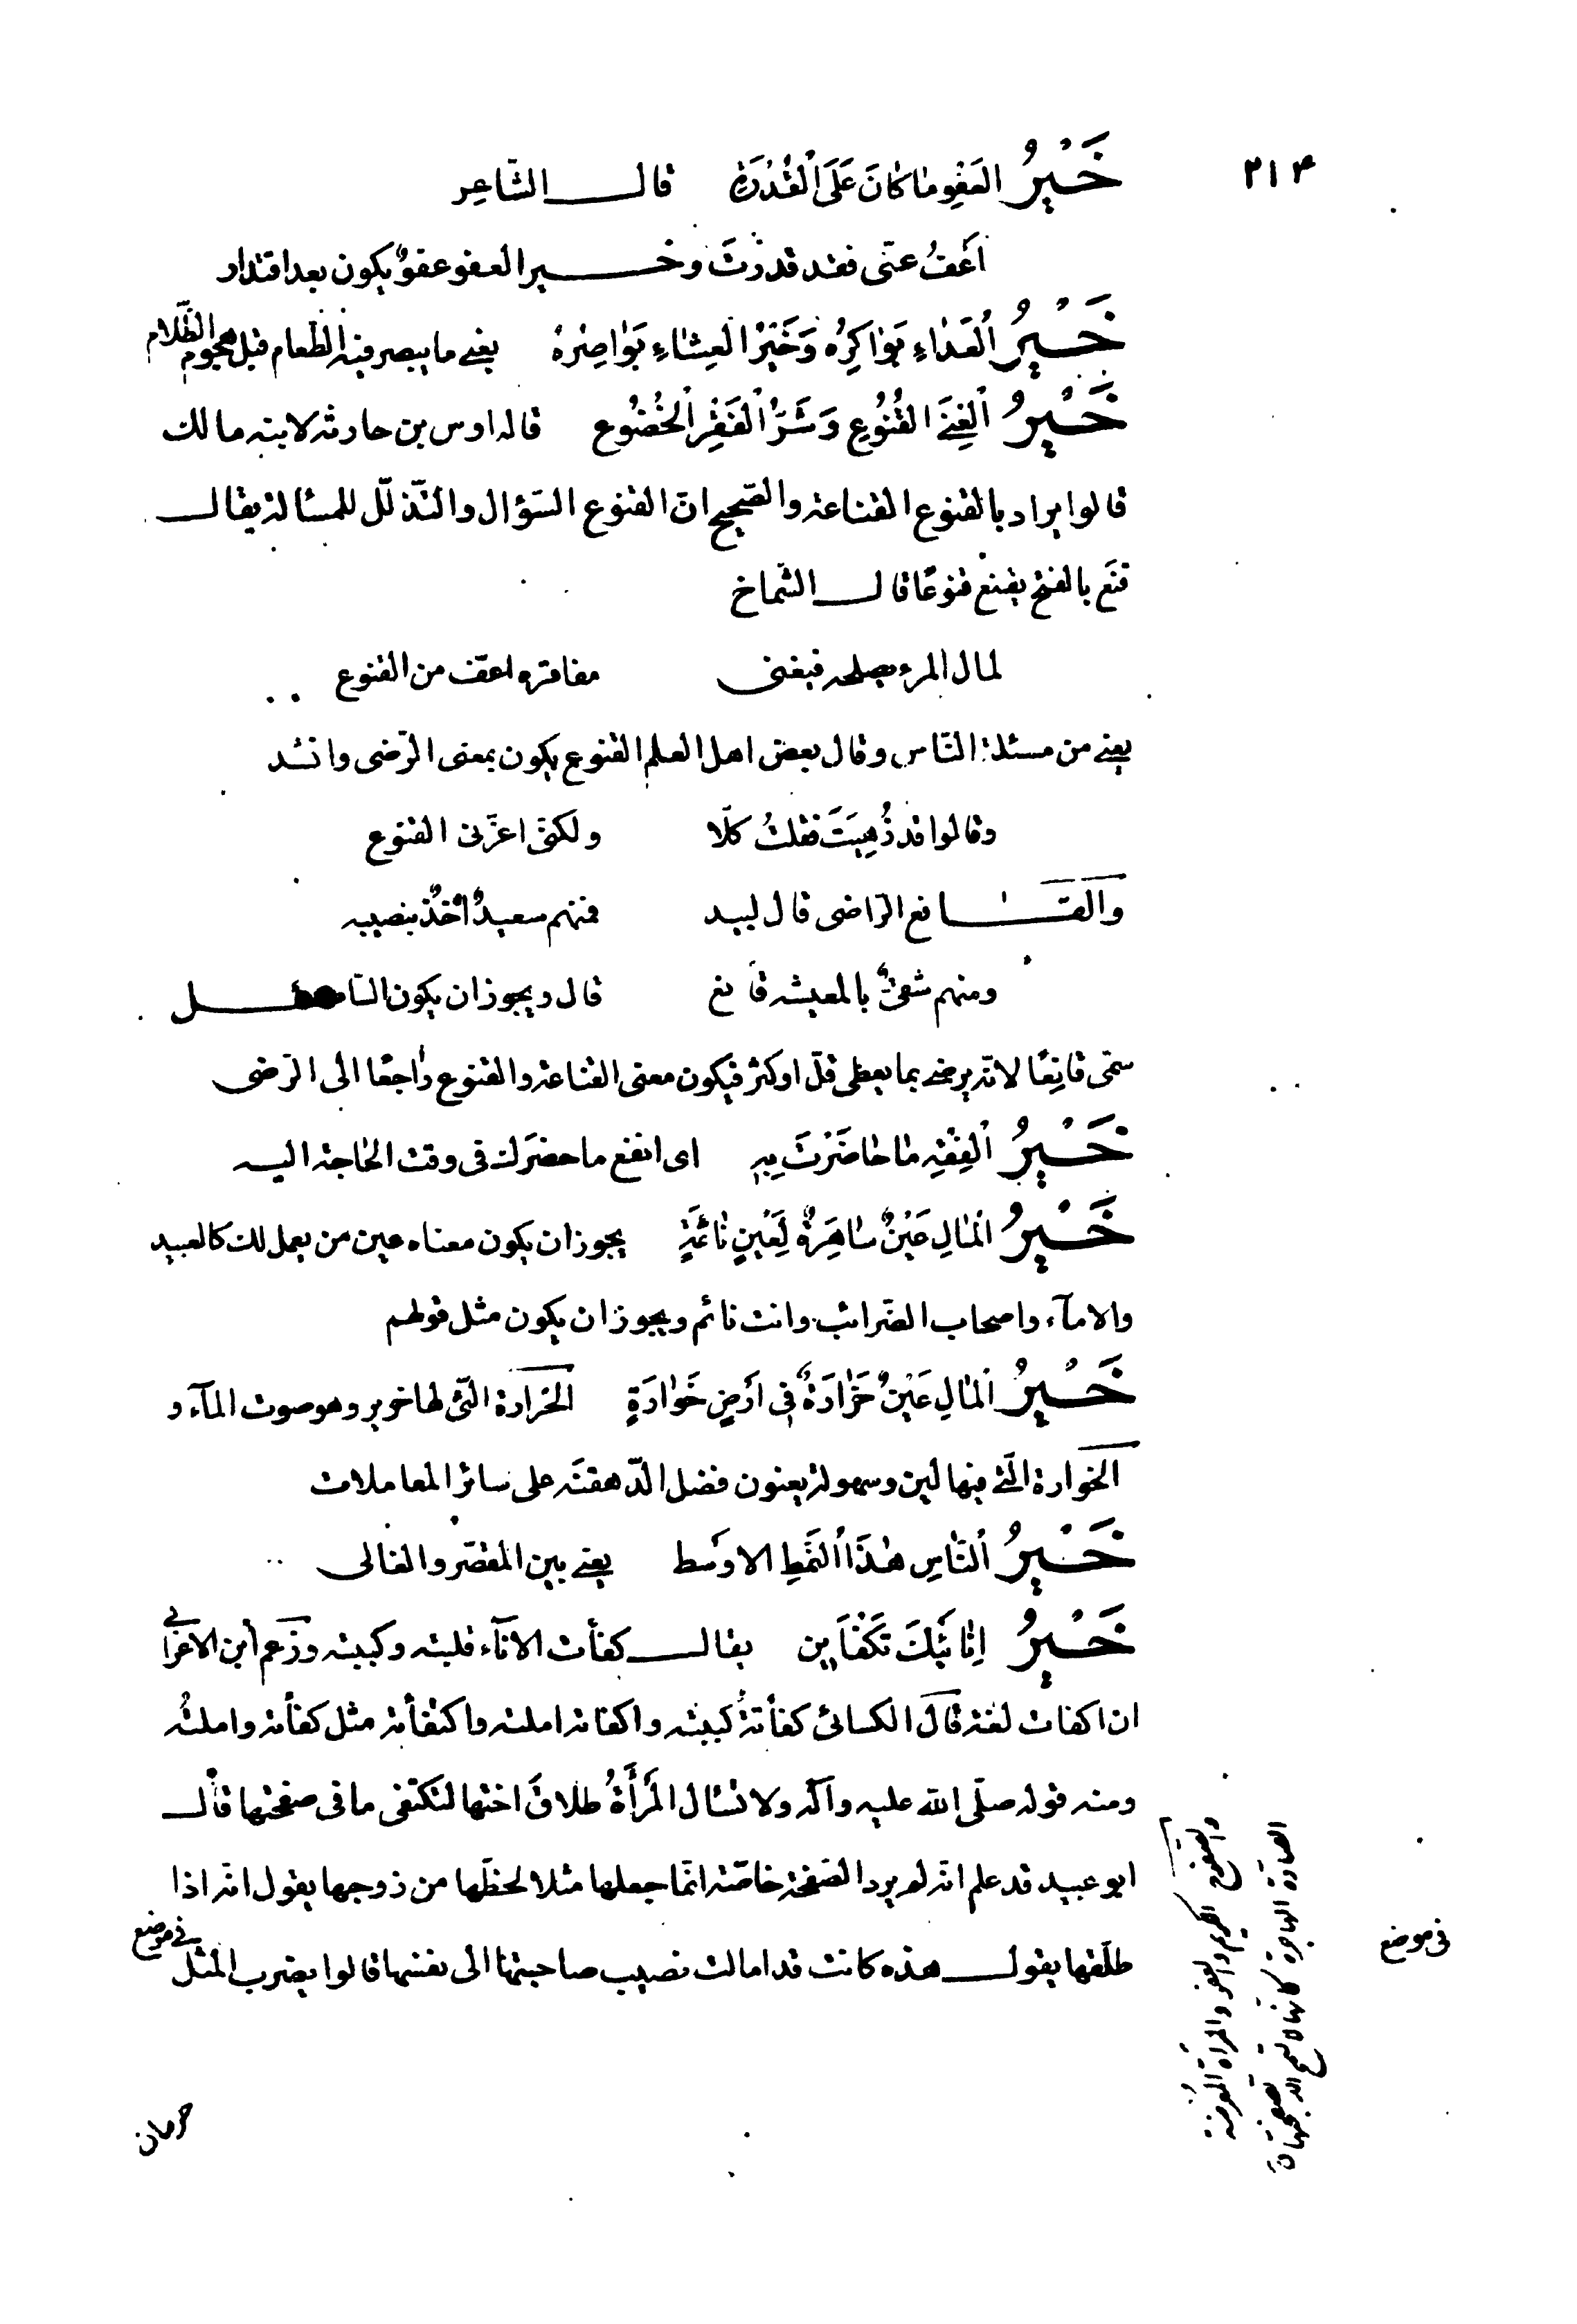 ٢١۴
خَيْرُ العَفْوِ مٰا كانَ عَلَى الْقُدْرَةِ قال الشّاعِر
اُعْفُ عنّى فقد قدرْتَ وخير العفو عفوٌ يكون بعد اقتدار
خَيْرُ اْلغَدٰاءِ بَوٰاكِرُهُ وَخَيْرُ الْعِشٰاءِ بَوٰاصِرُهُ يعنے ما يبصر فيه الطّعام قبل هجوم الظّلام
خَيْرُ اْلغِنَےَ القُنُوُعِ وَشَرُّ اْلفَقْرِ اْلخُضُوُع قاله اوس بن حارثه لابنه مالك
قالوا يراد بالقنوع القناعة والصّحيح انّ القنوع السّؤال والتّذلّل للمسئالة يقال
قنَع بالفتح يقنع قنوعًا قال الشّماخ
لمال المرء يصلحه فيغنى مفاقره اعفّ من القنوع
يعنے من مسئلة النّاس وقال بعض اهل العلم القنوع يكون بمعنى الرّضى وانشد
وقالوا قد زُهِيتَ فقلتُ كلّا ولكنّى اعزّنى القنوع
والقانع الرّاضى قال لبيد فمنهم سعيدٌ اٰخذٌ بنصيبه
ومنهم شقىٌّ بالمعيشه قانع قال ويجوز ان يكون السّائل
سمّى قانِعًا لانّه يرضے بما يعطى قلّ او كثر فيكون معنى القناعة والقنوع رٰاجعًا الى الرّضى
خَيْرُ اْلفِقْهِ مٰا حٰاضَرْتَ بِهِ اى انفع ما حضرَك فى وقت الحٰاجة اليه
خَيْرُ اْلمٰالِ عَيْنٌ سٰاهِرَةٌ لِعَيْنٍ نٰائمَةٍ يجوز ان يكون معناه عين من يعمل لك كالعبيد
والامآء واصحاب الضّرائب وانت نائم ويجوز ان يكون مثل قولهم
خَيْرُ اْلمٰالِ عَيْنٌ خَرّٰارَةٌ فِى اَرْضٍ خَوّٰارَةٍ الخرّارة الّتى لها خرير وهو صوت المآء و
الخوّارة الّتے فيها لين وسهولة يعنون فضل الدّهقنَة على سائر المعاملات
خَيْرُ اْلنّٰاسِ هٰذَا اْلنَّمَطِ الاَوْسط يعنے بين المقصّر والغالى
خَيْرُ اِنٰائَيْكَ تَكْفَأين يقال كفأت الانآء قلبته وكببته وزعم ابن الاعرابے
ان اكفات لغة قال الكسائى كفأتهُ كببته واكفاته املته واكتفأته مثل كفأته واملتُه
ومنه قوله صلّى الله عليه وآله ولا تسئال المَرْأَةُ طلاقَ اختها لتكتفى ما فى صفحتها قال
ابو عبيد قد علم انّه لم يرد الصّفحة خاصّة انّما جعلها مثلا لحظّها من زوجها يقول انّه اذا
طلّقها يقول هذه كانت قد امالت نصيب صاحبتها الى نفسها قالوا يضرب المثل فے موضع
حرمان
فى موضع